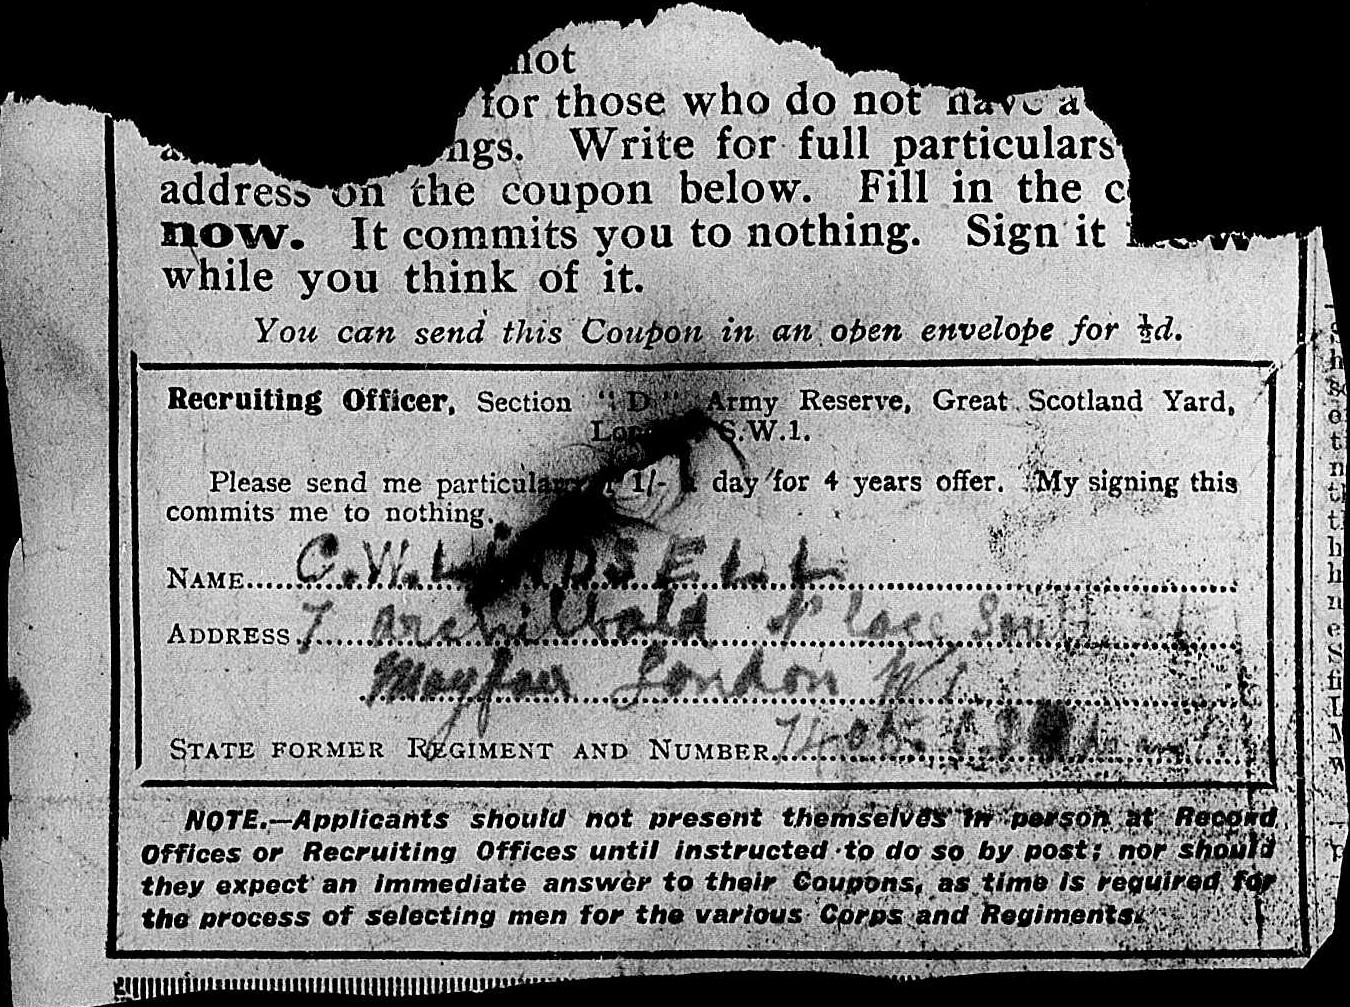 not
for those who do not have a
ngs. Write for full particulars
address on the coupon below. Fill in the
now. It commits you to nothing. Sign it now
while you think of it.
You can send this Coupon in an open envelope for ½d.
Recruiting Officer, Section "D" Army Reserve, Great Scotland Yard,
London, S.W.1.
Please send me particulars 1/- day for 4 years offer. My signing this
commits me to nothing.
NAME C.W. LINDSELL
ADDRESS 7 Archibald Place South St
Mayfair London W1
STATE FORMER REGIMENT AND NUMBER
NOTE.—Applicants should not present themselves in person at Record
Offices or Recruiting Offices until instructed to do so by post; nor should
they expect an immediate answer to their Coupons, as time is required for
the process of selecting men for the various Corps and Regiments.